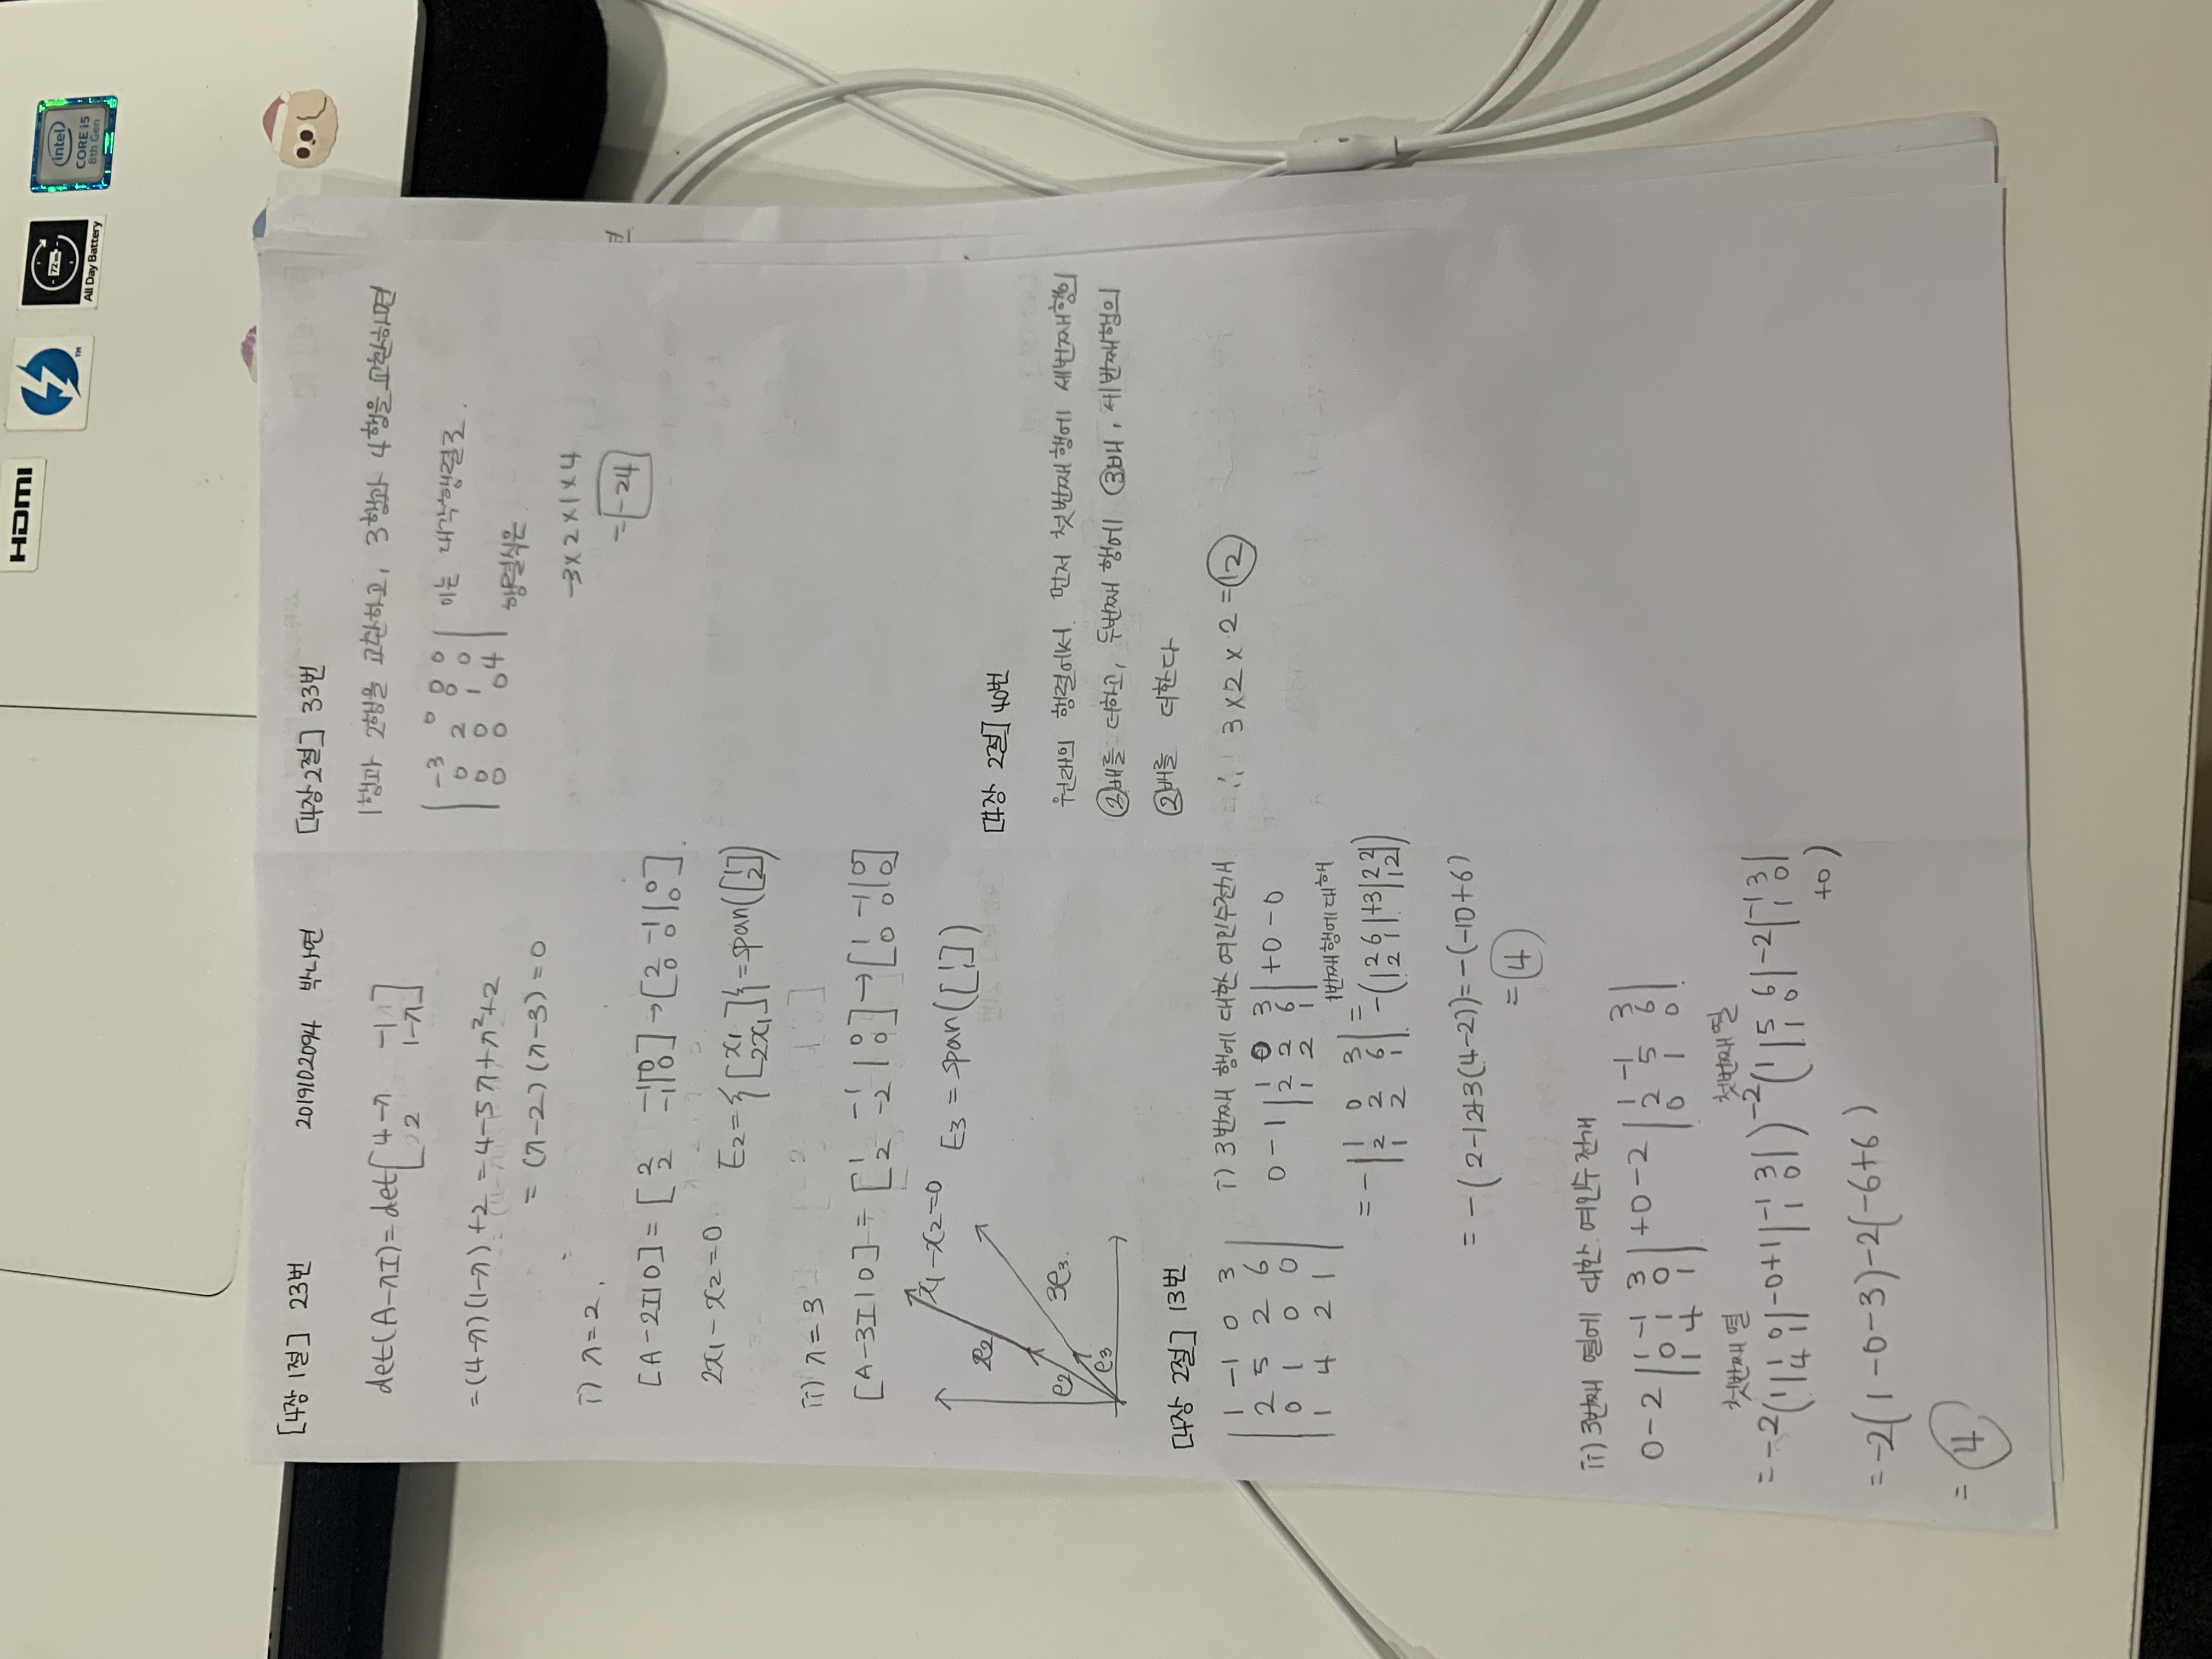 HDMI
TM
72 Wh
All Day Battery
intel
CORE i5
8th Gen
[4장 1절] 23번 2019102094 박나연
det(A-λI)=det[4-λ -1
2 1-λ]
=(4-λ)(1-λ)+2=4-5λ+λ²+2
=(λ-2)(λ-3)=0
i) λ=2,
[A-2I|0]=[2 -1|0 →[2 -1|0
2 -1|0] 0 0|0].
2x₁-x₂=0
E₂={[x₁
2x₁]}=span([1
2])
ii) λ=3
[A-3I|0]=[1 -1|0 →[1 -1|0
2 -2|0] 0 0|0]
x₁-x₂=0
E₃=span([1
1])
2e₂
e₂
3e₃
e₃
[4장 2절] 13번
|1 -1 0 3
2 5 2 6
0 1 0 0
1 4 2 1|
i) 3번째 행에 대한 여인수전개
0-1|1 0 3
2 2 6
1 2 1|+0-0
=-|1 0 3
2 2 6
1 2 1|
1번째행에 대해
=-(1|2 6
2 1|+3|2 2
1 2|)
=-(2-12+3(4-2))=-(-10+6)
=4
ii) 3번째 열에 대한 여인수전개
0-2|1 -1 3
0 1 0
1 4 1|+0-2|1 -1 3
2 5 6
0 1 0|
첫번째 열 첫번째 열
=-2(1|1 0
4 1|-0+1|-1 3
1 0|)-2(1|5 6
1 0|-2|-1 3
1 0|
+0)
=-2(1-0-3)-2(-6+6)
=4
[4장 2절] 33번
1행과 2행을 교환하고, 3행과 4행을 교환하면
|-3 0 0 0
0 2 0 0
0 0 1 0
0 0 0 4|
이는 대각행렬로.
행렬식은
-3×2×1×4
=-24
[4장 2절] 40번
원래의 행렬에서 먼저 첫번째 행에 세번째행의
②배를 더하고, 두번째 행에 ③배, 세번째행의
②배를 더한다
∴ 3×2×2=12